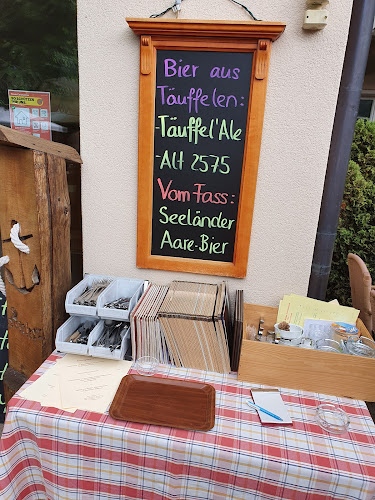 Bier aus
Täuffelen:
-Täuffel'Ale
-Alt 2575
Vom Fass:
Seeländer
Aare-Bier